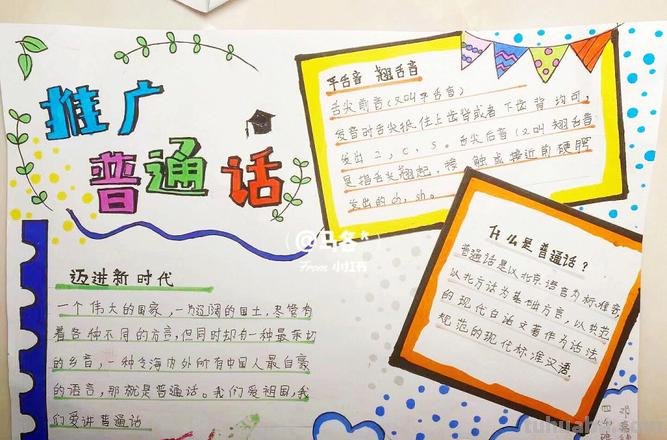 推广
普通话
平舌音 翘舌音
舌尖前音(又叫平舌音)
发音时舌尖抵住上齿背或者下齿背均可,
发出z,c,s。舌尖后音(又叫翘舌音
是指舌尖翘起,接触或接近前硬腭
发出的
sh。
什么是普通话?
普通话是以北京语言为标准音,
以北方话为基础方言,以典范
的现代白话文著作为语法
规范的现代标准汉语。
迈进新时代
一个伟大的国家,一
辽阔的国土,尽管有
着各种不同的方言,但同时却有一种最亲切
的乡音,一种令海内外所有中国人最自豪
的语言,那就是普通话。我们爱祖国,我
们爱讲普通话
From 小红书
tuhuabu.com